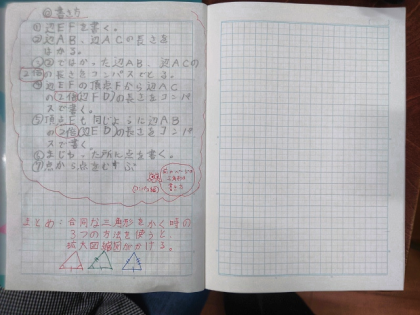 書き方
①辺EFを書く。
②辺AB、辺ACの長さを
はかる。
③②ではかった辺AB、辺ACの
2倍の長さをコンパスでとる。
④辺EFの頂点Fから辺AC
の(2倍)(辺FD)の長さをコンパ
スで書く。
⑤頂点Eも同じように辺AB
の(2倍)(辺ED)の長さをコンパ
スで書く。
⑥まじわった所に点を書く。
⑦点から点をむすぶ
書き方
まとめ:合同な三角形をかく時の
3つの方法を使うと
拡大図縮図がかける。